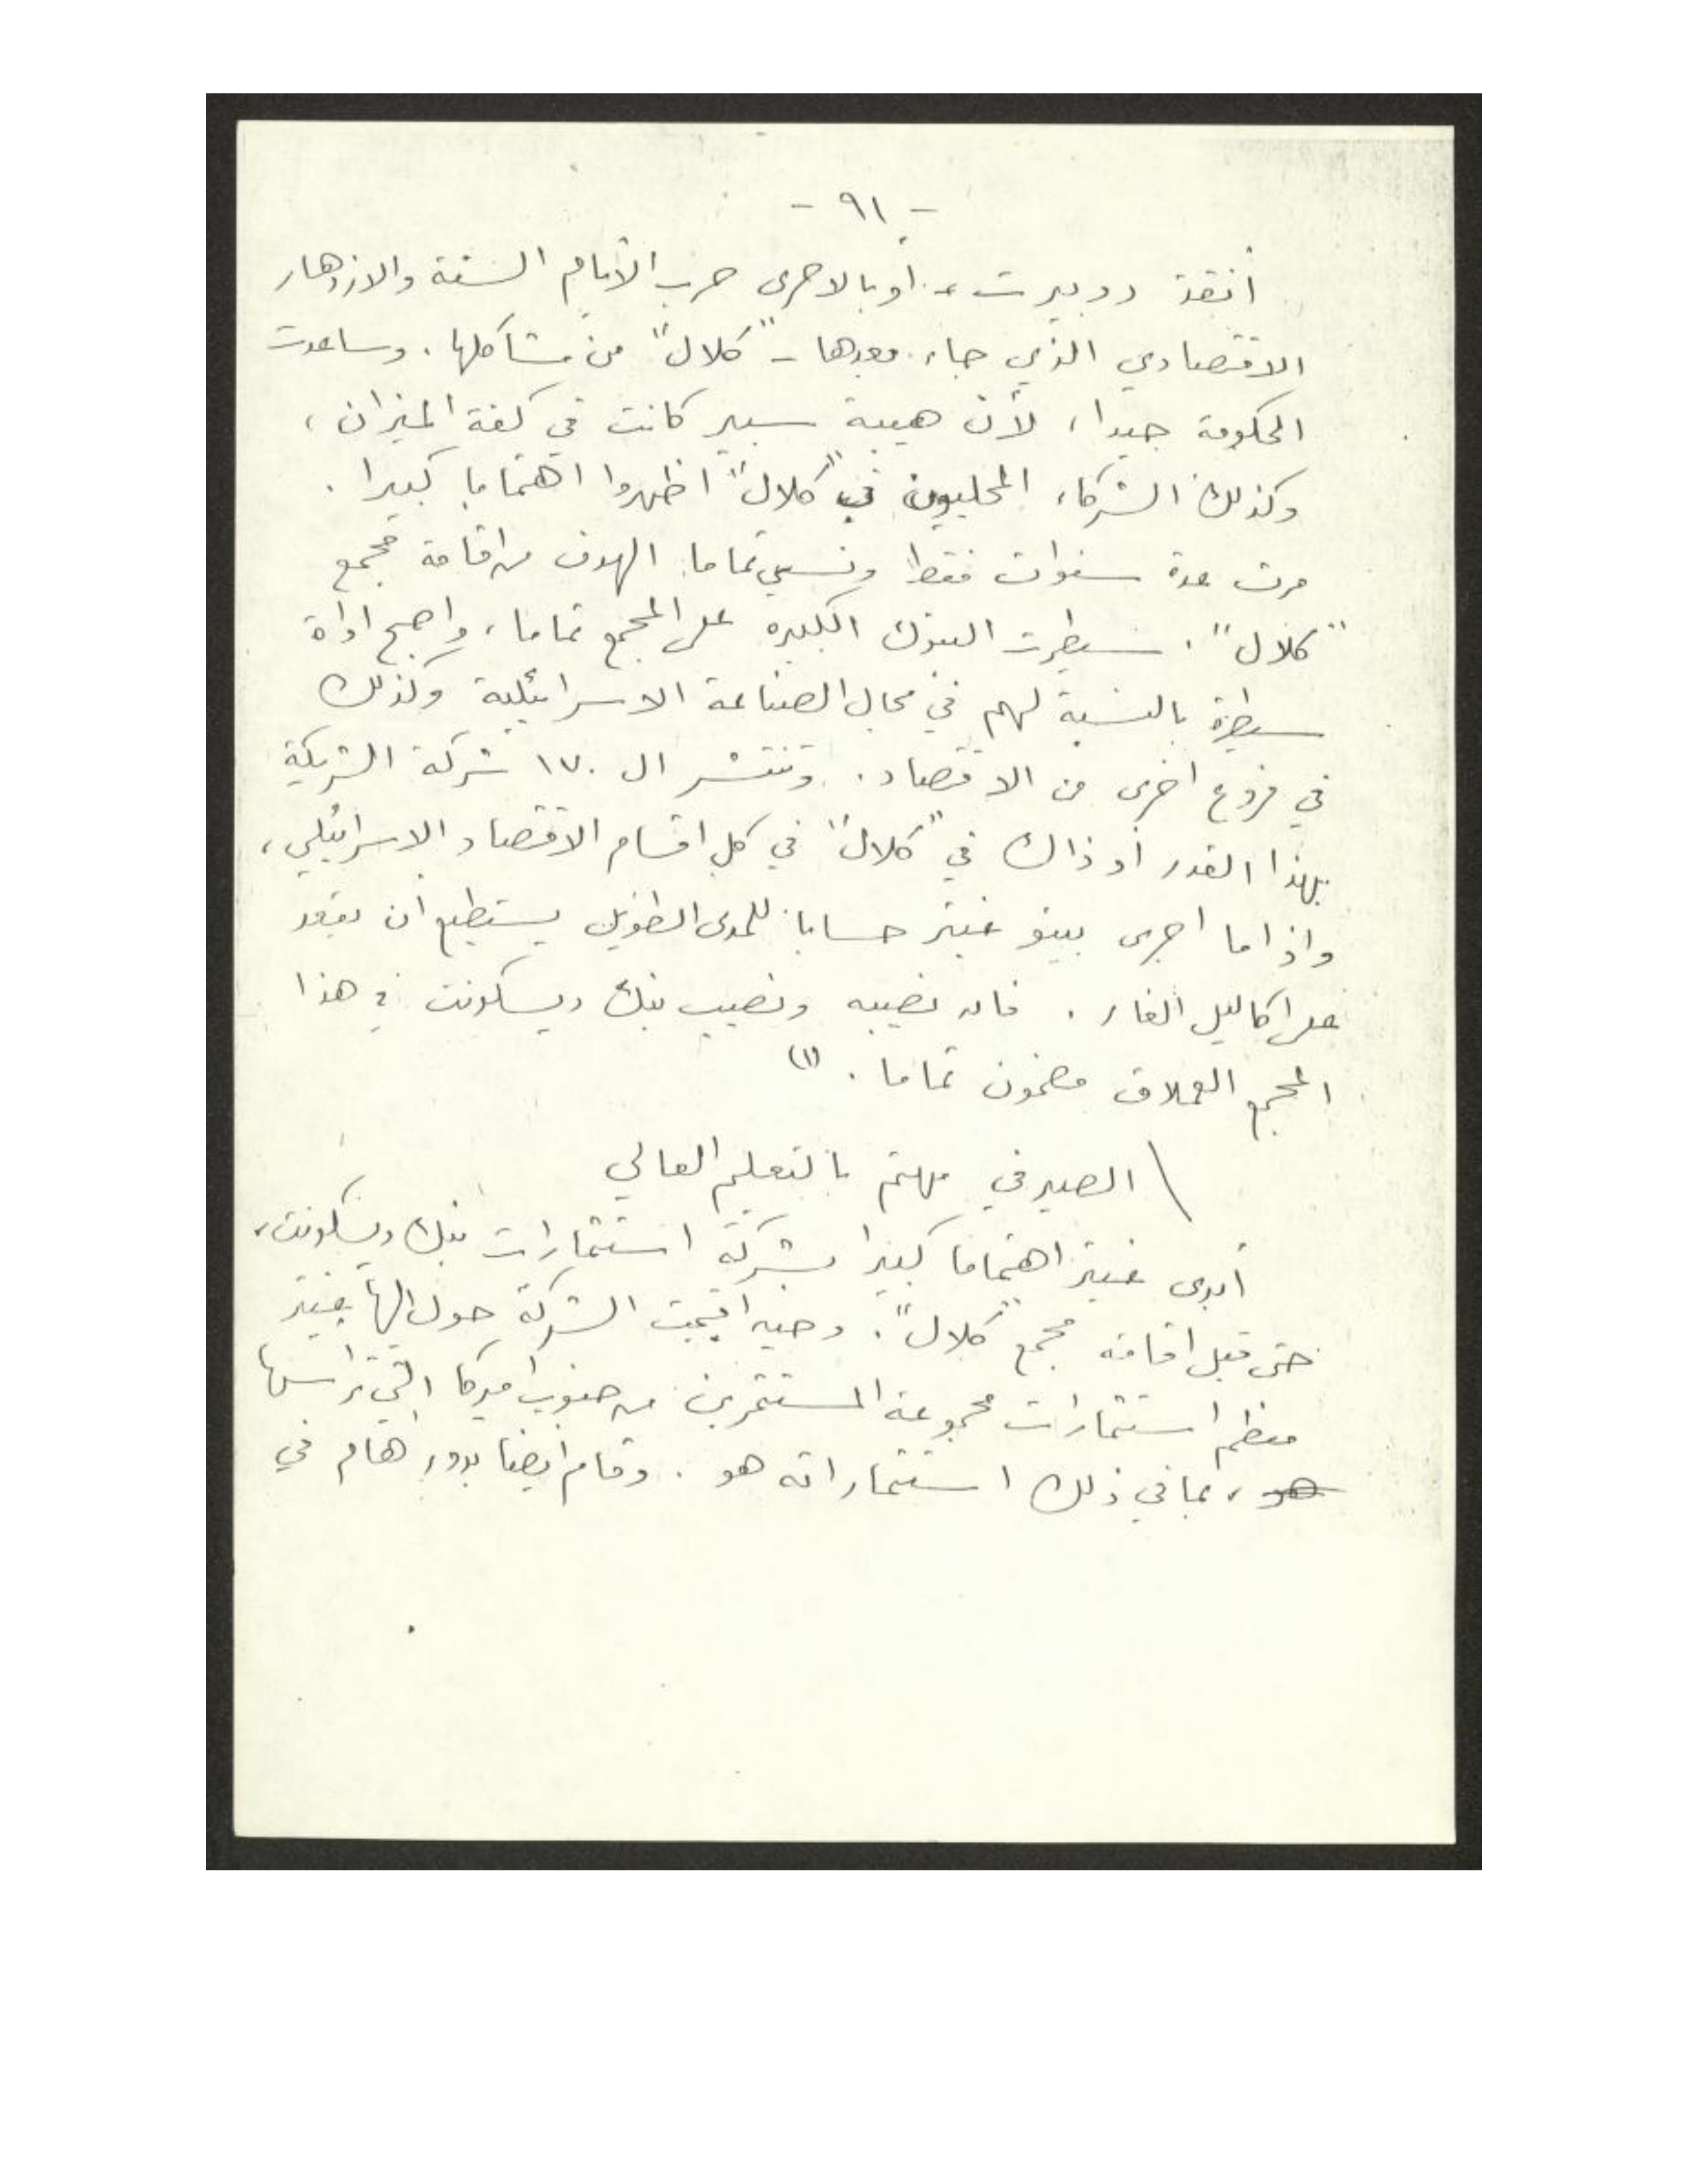 - ٩١ -
أنقذ روبيرت، أو بالاحرى حرب الأيام الستة والازدهار
الاقتصادي الذي جاء بعدها - "كلال" من مشاكلها. وساعدت
الحكومة جيدا، لأن هيبة سبير كانت في كفة الميزان،
وكذلك الشركاء المحليون في "كلال" اظهروا اهتماما كبيرا.
مرت عدة سنوات فقط ونسي تماما الهدف من اقامة مجمع
"كلال". سيطرت البنوك الكبيره على المجمع تماما، واصبح اداة
سيطرة بالنسبة لهم في مجال الصناعة الاسرائيلية وكذلك
في فروع اخرى من الاقتصاد. وتنتشر ال ١٧٠ شركة الشريكة
بهذا القدر أو ذاك في "كلال" في كل اقسام الاقتصاد الاسرائيلي،
واذا ما اجرى بينو غيتر حسابا للمدى الطويل يستطيع أن يقعد
على اكاليل الغار. فان نصيبه ونصيب بنك ديسكونت في هذا
المجمع العملاق مضمون تماما. (١)
الصيرفي مهتم بالتعليم العالي
أبدى غيتر اهتماما كبيرا بشركة استثمارات بنك ديسكونت،
حتى قبل اقامة مجمع "كلال". وحين اقيمت الشركة حول اليها غيتر
معظم استثمارات مجموعة المستثمرين من جنوب اميركا التي ترأسها
هو، بما في ذلك استثماراته هو. وقام ايضا بدور هام في